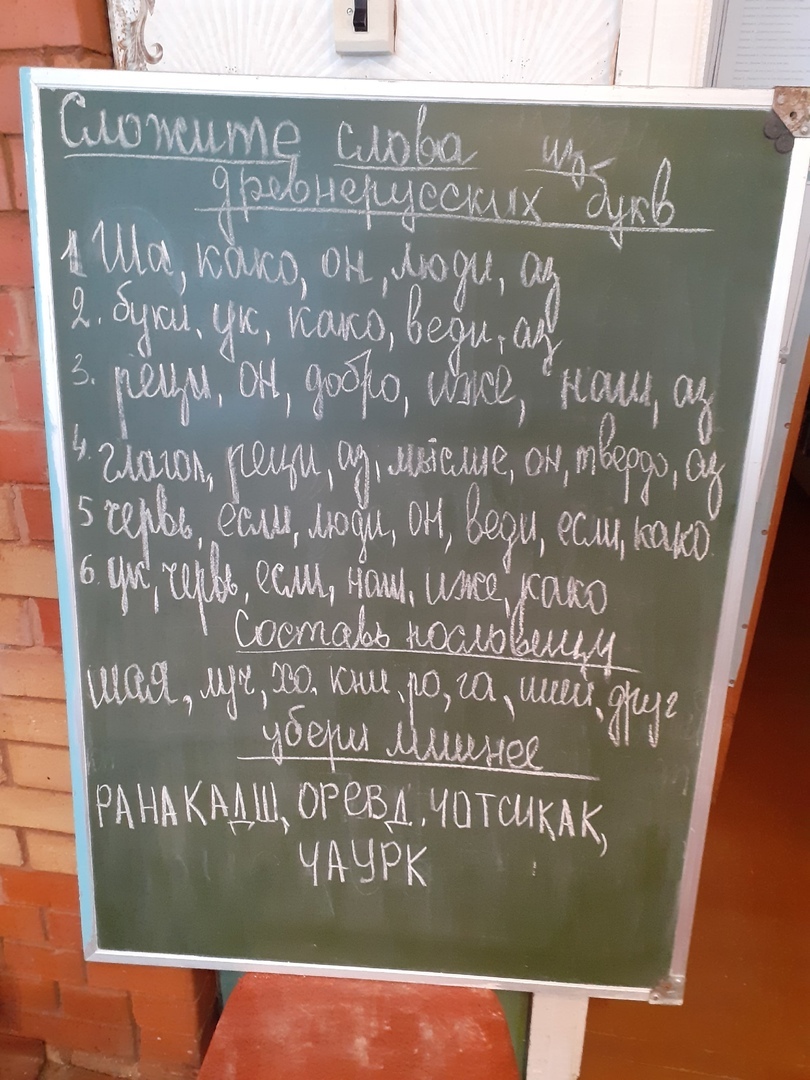 Сложите слова из
древнерусских букв
1 Ша, како, он, люди, аз
2. буки, ук, како, веди, аз
3. рещи, он, добро, иже, наш, аз
4. глагол, рещи, аз, мыслие, он, твердо, аз
5 червь, если, люди, он, веди, если, како
6. ук, червь, если, наш, иже, како
Составь пословицу
шая, луч, хо, кни, ро, га, ший, друг
убери лишнее
РАНАКАДШ, ОРЕВД, ЧОТСИКАК,
ЧАУРК